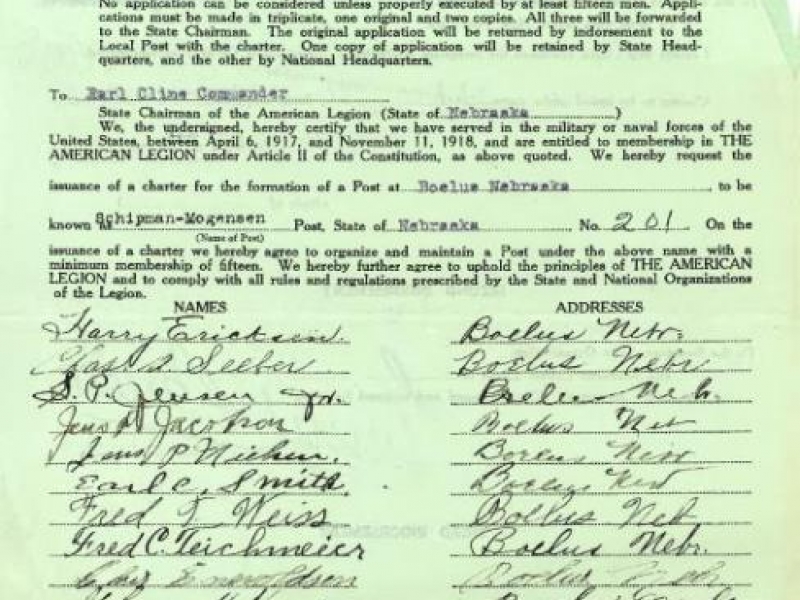 No application can be considered unless properly executed by at least fifteen men. Appli-
cations must be made in triplicate, one original and two copies. All three will be forwarded
to the State Chairman. The original application will be returned by indorsement to the
Local Post with the charter. One copy of application will be retained by State Head-
quarters, and the other by National Headquarters.
To Earl Cline Commander
State Chairman of the American Legion (State of Nebraska)
We, the undersigned, hereby certify that we have served in the military or naval forces of the
United States, between April 6, 1917, and November 11, 1918, and are entitled to membership in THE
AMERICAN LEGION under Article II of the Constitution, as above quoted. We hereby request the
issuance of a charter for the formation of a Post at Boelus Nebraska, to be
known as Schipman-Mogensen Post, State of Nebraska No. 201. On the
(Name of Post)
issuance of a charter we hereby agree to organize and maintain a Post under the above name with a
minimum membership of fifteen. We hereby further agree to uphold the principles of THE AMERICAN
LEGION and to comply with all rules and regulations prescribed by the State and National Organizations
of the Legion.
NAMES ADDRESSES
Harry Erickson. Boelus Nebr.
Chas. A. Seeber Boelus Nebr
S. P. Jensen Jr. Boelus Neb.
Jens Jacobson Boelus Neb
Jens P Nielsen. Boelus
Earl C. Smith. Boelus
Fred Weiss Boelus Neb
Fred C. Teichmeier Boelus Nebr.
Boelus